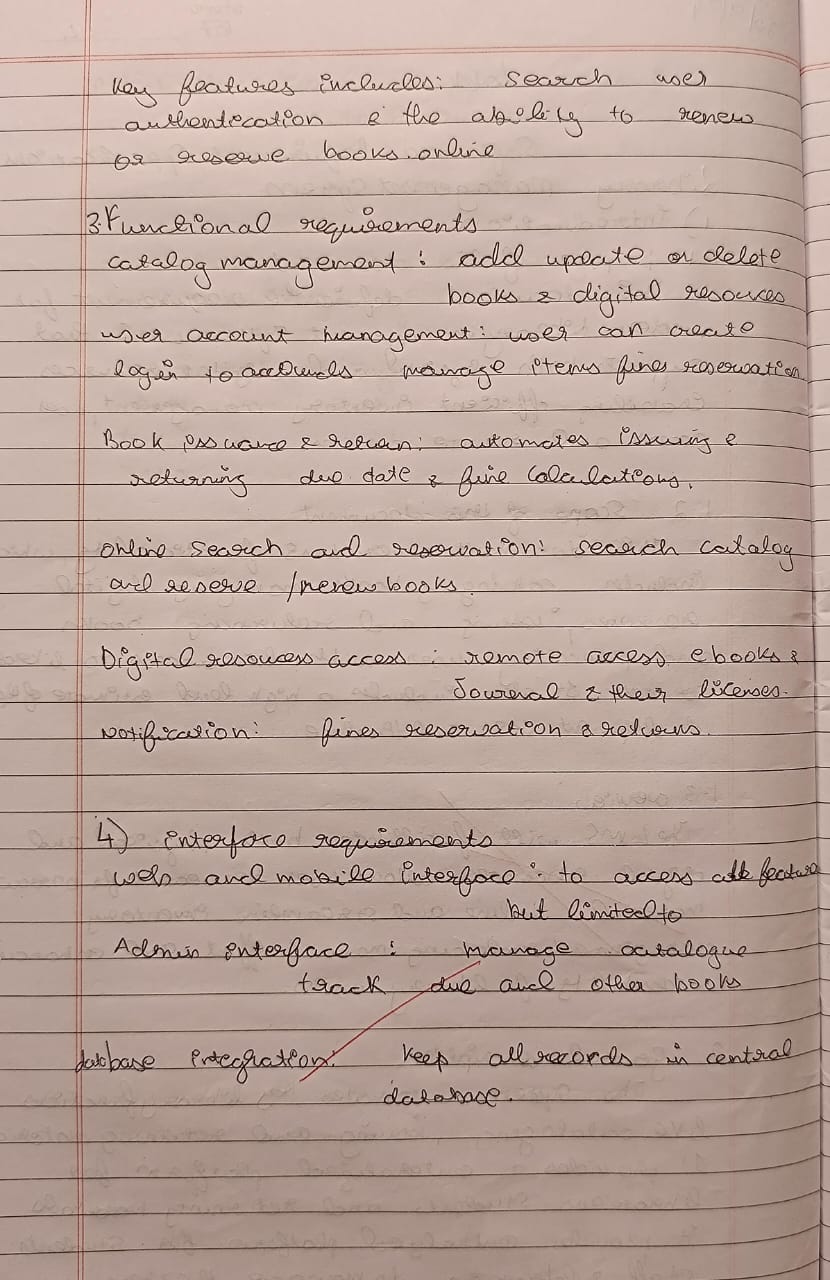 Key features includes: Search user
authentication & the ability to renew
or reserve books. online
3. Functional requirements
catalog management : add update or delete
books & digital resouces
user account management: user can create
login to accounts manage items fines reservation
Book issuance & return: automates issuing &
returning due date & fine calculations.
online search and reservation: search catalog
and reserve /renew books.
Digital resouces access : remote access ebooks &
Journal & their licenses.
Notification: fines reservation & returns.
4) interface requirements
web and mobile interface : to access all feature
but limited to
Admin interface : manage catalogue
track due and other books
database integration: Keep all records in central
database.